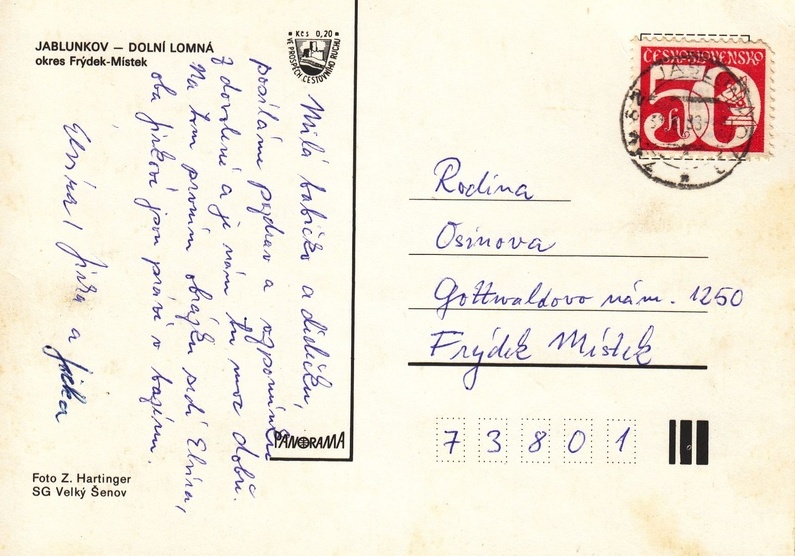 JABLUNKOV — DOLNÍ LOMNÁ
okres Frýdek-Místek
Kčs 0,20
VE PROSPĚCH CESTOVNÍHO RUCHU
Milá babičko a dědečku,
posíláme pozdrav a vzpomínku
z dovolené a je nám tu moc dobře.
Na tom prvním obrázku sedí Elvíra,
oba Jirkové jsou právě v bazénu.
Elvíra, Jirka a Jirka
PANORAMA
Foto Z. Hartinger
SG Velký Šenov
ČESKOSLOVENSKO
50 h
Rodina
Osinova
Gottwaldovo nám. 1250
Frýdek Místek
73801